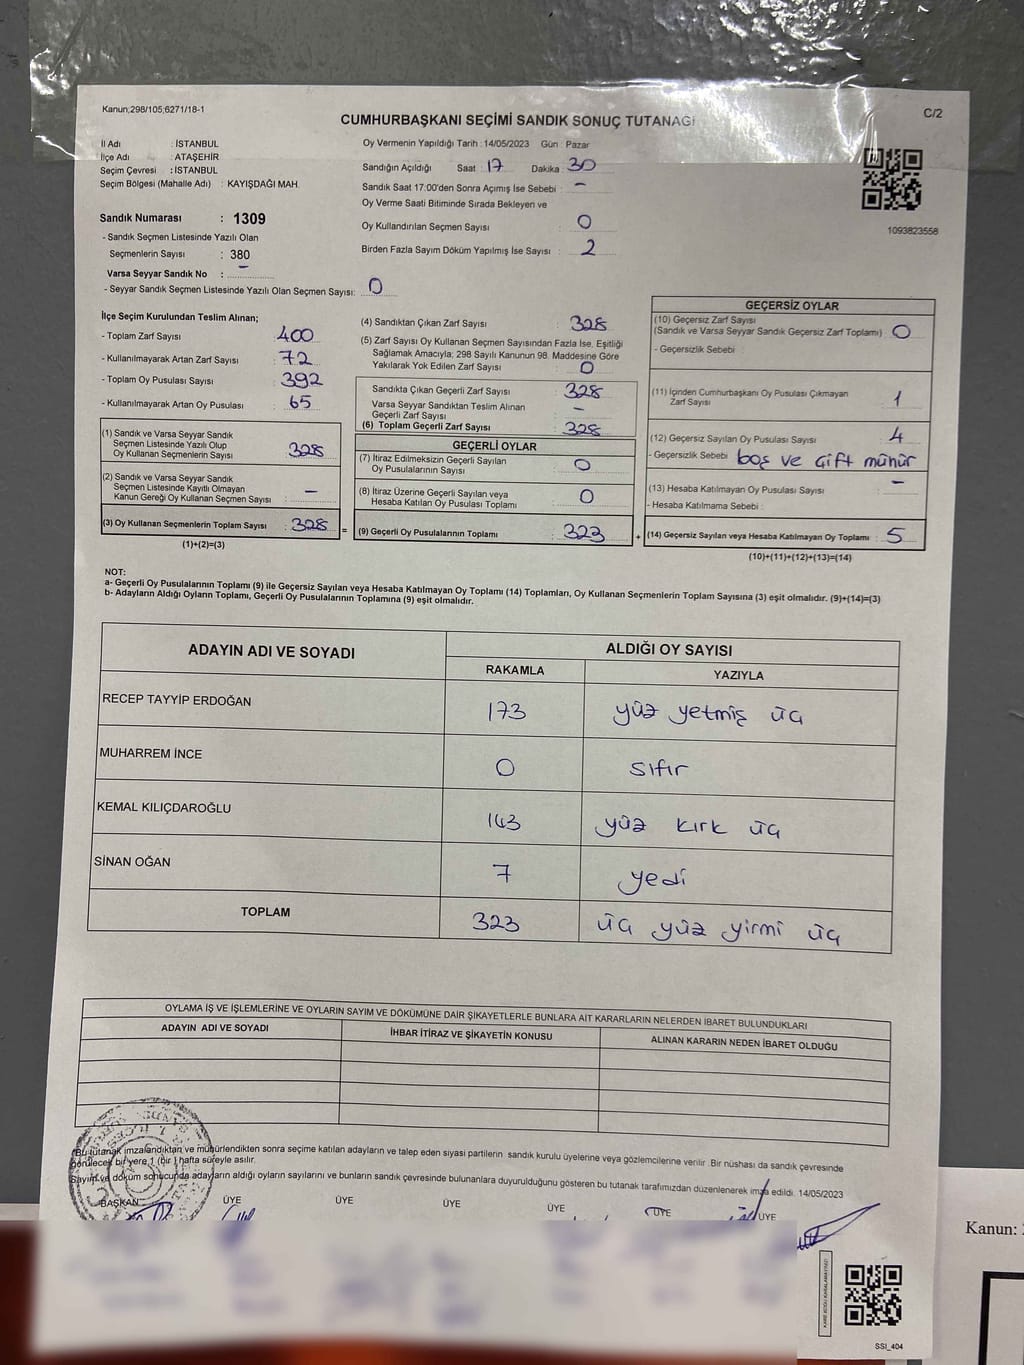 Kanun;298/105;6271/18-1
C/2
CUMHURBAŞKANI SEÇİMİ SANDIK SONUÇ TUTANAĞI
İl Adı : İSTANBUL
İlçe Adı : ATAŞEHİR
Seçim Çevresi : İSTANBUL
Seçim Bölgesi (Mahalle Adı) : KAYIŞDAĞI MAH.
Sandık Numarası : 1309
- Sandık Seçmen Listesinde Yazılı Olan
Seçmenlerin Sayısı : 380
Varsa Seyyar Sandık No : -
- Seyyar Sandık Seçmen Listesinde Yazılı Olan Seçmen Sayısı: 0
Oy Vermenin Yapıldığı Tarih : 14/05/2023 Gün : Pazar
Sandığın Açıldığı Saat : 17 Dakika : 30
Sandık Saat 17:00'den Sonra Açımış İse Sebebi : -
Oy Verme Saati Bitiminde Sırada Bekleyen ve
Oy Kullandırılan Seçmen Sayısı : 0
Birden Fazla Sayım Döküm Yapılmış İse Sayısı : 2
1093823558
İlçe Seçim Kurulundan Teslim Alınan;
- Toplam Zarf Sayısı : 400
- Kullanılmayarak Artan Zarf Sayısı : 72
- Toplam Oy Pusulası Sayısı : 392
- Kullanılmayarak Artan Oy Pusulası : 65
(1) Sandık ve Varsa Seyyar Sandık
Seçmen Listesinde Yazılı Olup
Oy Kullanan Seçmenlerin Sayısı : 328
(2) Sandık ve Varsa Seyyar Sandık
Seçmen Listesinde Kayıtlı Olmayan
Kanun Gereği Oy Kullanan Seçmen Sayısı : -
(3) Oy Kullanan Seçmenlerin Toplam Sayısı : 328 =
(1)+(2)=(3)
(4) Sandıktan Çıkan Zarf Sayısı : 328
(5) Zarf Sayısı Oy Kullanan Seçmen Sayısından Fazla İse, Eşitliği
Sağlamak Amacıyla; 298 Sayılı Kanunun 98. Maddesine Göre
Yakılarak Yok Edilen Zarf Sayısı : 0
Sandıkta Çıkan Geçerli Zarf Sayısı : 328
Varsa Seyyar Sandıktan Teslim Alınan
Geçerli Zarf Sayısı : -
(6) Toplam Geçerli Zarf Sayısı : 328
GEÇERLİ OYLAR
(7) İtiraz Edilmeksizin Geçerli Sayılan
Oy Pusulalarının Sayısı : 0
(8) İtiraz Üzerine Geçerli Sayılan veya
Hesaba Katılan Oy Pusulası Toplamı : 0
(9) Geçerli Oy Pusulalarının Toplamı : 323 +
GEÇERSİZ OYLAR
(10) Geçersiz Zarf Sayısı
(Sandık ve Varsa Seyyar Sandık Geçersiz Zarf Toplamı) : 0
- Geçersizlik Sebebi :
(11) İçinden Cumhurbaşkanı Oy Pusulası Çıkmayan
Zarf Sayısı : 1
(12) Geçersiz Sayılan Oy Pusulası Sayısı : 4
- Geçersizlik Sebebi : boş ve çift mühür
(13) Hesaba Katılmayan Oy Pusulası Sayısı : -
- Hesaba Katılmama Sebebi :
(14) Geçersiz Sayılan veya Hesaba Katılmayan Oy Toplamı : 5
(10)+(11)+(12)+(13)=(14)
NOT:
a- Geçerli Oy Pusulalarının Toplamı (9) ile Geçersiz Sayılan veya Hesaba Katılmayan Oy Toplamı (14) Toplamları, Oy Kullanan Seçmenlerin Toplam Sayısına (3) eşit olmalıdır. (9)+(14)=(3)
b- Adayların Aldığı Oyların Toplamı, Geçerli Oy Pusulalarının Toplamına (9) eşit olmalıdır.
ADAYIN ADI VE SOYADI
ALDIĞI OY SAYISI
RAKAMLA YAZIYLA
RECEP TAYYİP ERDOĞAN 173 yüz yetmiş üç
MUHARREM İNCE 0 sıfır
KEMAL KILIÇDAROĞLU 143 yüz kırk üç
SİNAN OĞAN 7 yedi
TOPLAM 323 üç yüz yirmi üç
OYLAMA İŞ VE İŞLEMLERİNE VE OYLARIN SAYIM VE DÖKÜMÜNE DAİR ŞİKAYETLERLE BUNLARA AİT KARARLARIN NELERDEN İBARET BULUNDUKLARI
ADAYIN ADI VE SOYADI İHBAR İTİRAZ VE ŞİKAYETİN KONUSU ALINAN KARARIN NEDEN İBARET OLDUĞU
Bu tutanak imzalandıktan ve mühürlendikten sonra seçime katılan adayların ve talep eden siyasi partilerin sandık kurulu üyelerine veya gözlemcilerine verilir. Bir nüshası da sandık çevresinde
görülecek bir yere 1 (bir) hafta süreyle asılır.
Sayım ve döküm sonucunda adayların aldığı oyların sayılarını ve bunların sandık çevresinde bulunanlara duyurulduğunu gösteren bu tutanak tarafımızdan düzenlenerek imza edildi. 14/05/2023
BAŞKAN ÜYE ÜYE ÜYE ÜYE ÜYE ÜYE
SSI_404
Kanun: